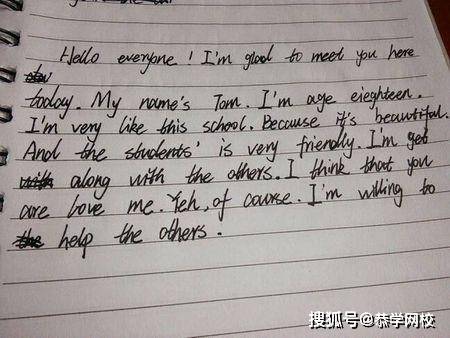 Hello everyone! I'm glad to meet you here
today. My name's Tom. I'm age eieghteen.
I'm very like this school. Because it's beautiful.
And the students' is very friendly. I'm get
along with the others. I think that you
are love me. Yeh, of course. I'm willing to
help the others.
搜狐号@恭学网校